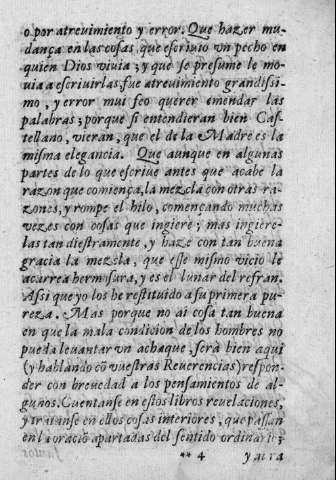 o por atreuimiento y error. Que hazer mu-
dança en las cosas que escriuio vn pecho en
quien Dios viuia; y que se presume le mo-
uia a escriuirlas, fue atreuimiento grandissi-
mo, y error mui feo querer emendar las
palabras; porque si entendieran bien Cas-
tellano, vieran, que el de la Madre es la
misma elegancia. Que aunque en algunas
partes de lo que escriue antes que acabe la
razon que comiença, la mezcla con otras ra-
zones, y rompe el hilo, començando muchas
vezes con cosas que ingiere; mas ingiere-
las tan diestramente, y haze con tan buena
gracia la mezcla, que esse mismo vicio le
acarrea hermosura, y es el lunar del refran.
Assi que yo los he restituido a su primera pu-
reza. Mas porque no ai cosa tan buena
en que la mala condicion de los hombres no
pueda leuantar vn achaque, serà bien aqui
(y hablando cō vuestras Reuerencias) respon-
der con breuedad a los pensamientos de al-
gunos. Cuentanse en estos libros reuelaciones,
y tratanse en ellos cosas interiores, que passan
en la oraciō apartadas del sentido ordinario;
** 4 y aura